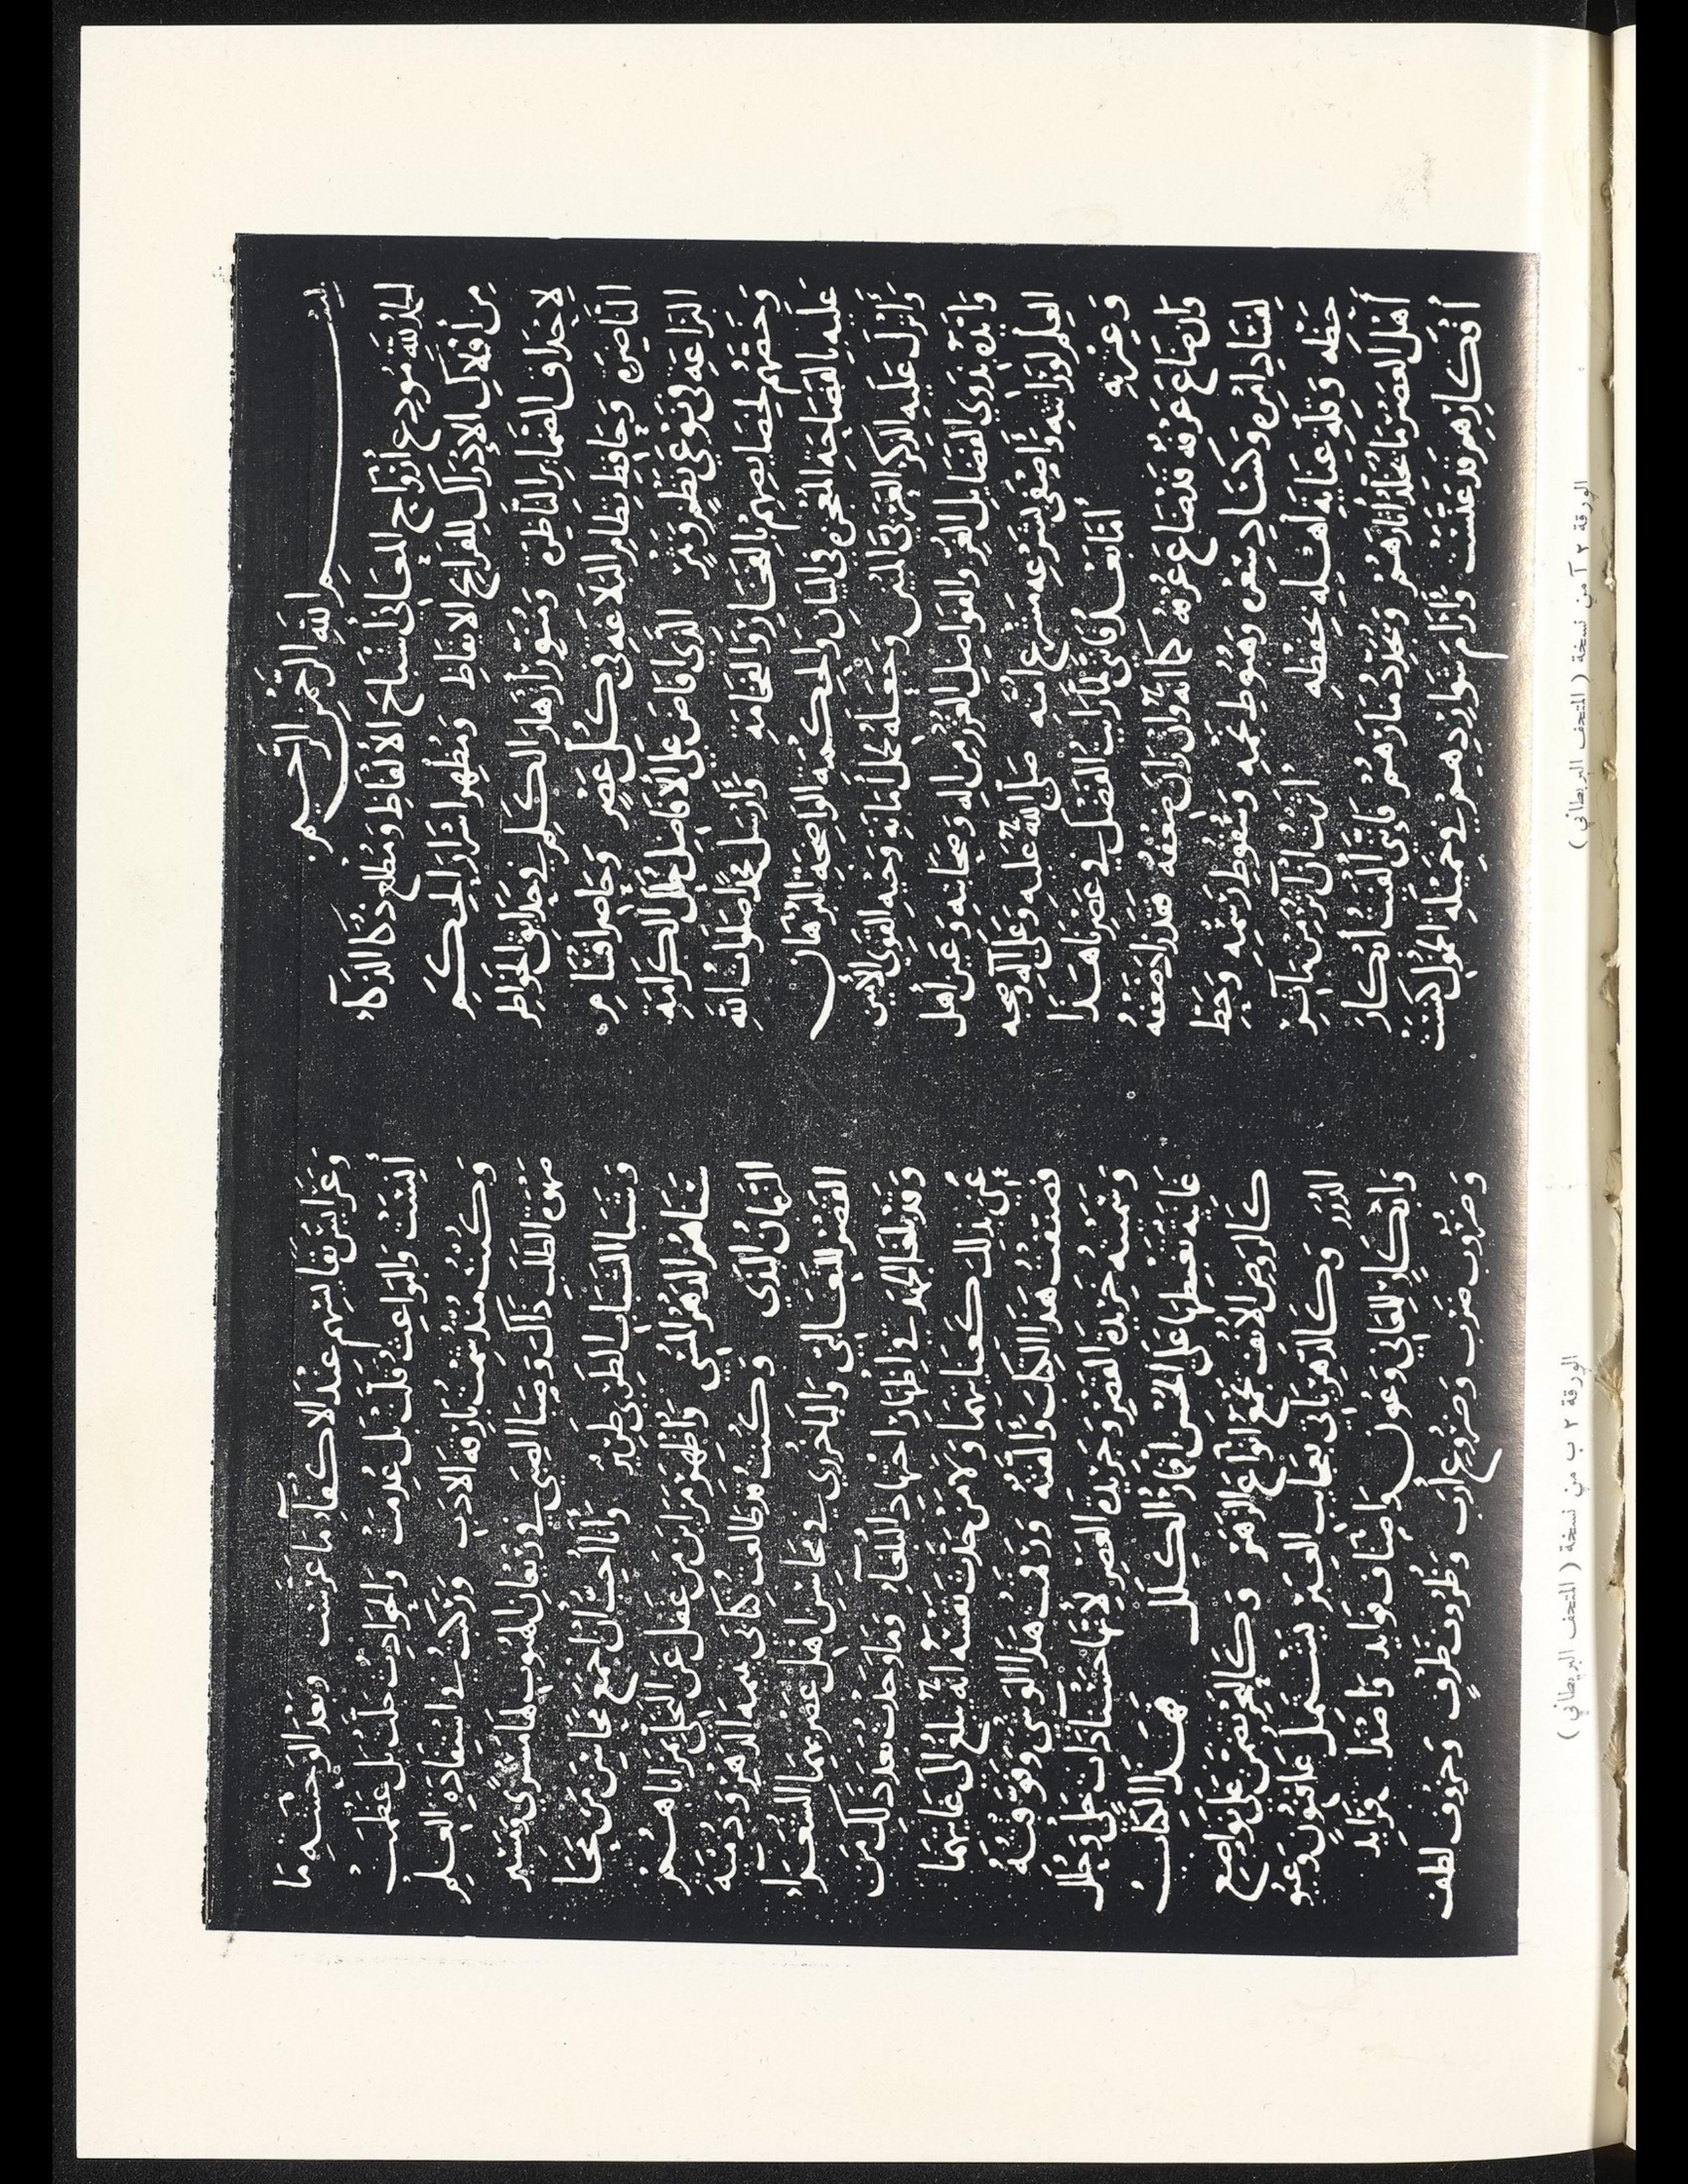 بسم الله الرحمن الرحيم
الحمد لله مودع أرواح المعاني أشباح الألفاظ ومطلع ذكاء الذكاء
من أفلاك الإدراك للقرائح الأيقاظ ومظهر أسرار الحكم
لأحداق الضمائر الناظرة ومنور أزهار الكلم في حدائق الخواطر
الناضرة وحافظ نظام البلاغة في كل عصر وحاصر أقسام
البراعة في نوعي نظم ونثر الذي أفاض على الأفاضل حلل الكرامة
وخصهم لخصائصهم بالفخار والفخامة وأرسل محمدا صلوات الله
عليه بالفصاحة المعجزة البيان والحكمة الواضحة البرهان
وأنزل عليه الذكر العربي المبين وجعله محل أمانة وحيه القوي الأمين
وأيده بذوي الفضائل الغر والفواضل الغزر من آله وصحابته أهل
العلم لوراثته وأصفى بشرعه مشرع أمته صلى الله عليه وعلى آله وصحبه
وعترته أما بعد فإني لما رأيت الفضل في عصرنا هذا
وإن ضاع عرفه قد ضاع عرفه كما أنه وإن زان ضعفه قد زاد ضعفه
لفساد وكساد سعره وهبوط نجمه وسقوط رسمه وحط
حظه وقلة عناية أهله بحفظه آثرت أن أوثر من مآثر
أهل العصر ما يخلد آثارهم ويجدد منارهم فإنني ألفيت أبكار
أفكارهم قد عنست وأرام شواردهم في خميلة الخمول كنست
الورقة ٢ آ من نسخة ( المتحف البريطاني )
وعرائس نفائسهم عند الأكفاء ما عرست وبعد الوحشة ما
أنست والبواعث قلت بل عدمت والحوادث جلت بل عظمت
وكنت منذ شمت بارقة الأدب وركبت في استفادة العلم
صهوة الطلب ذاك وصبا الصبى في ريعان الهبوب لها مسرى ومسير
وشبا الشباب الطري طرير وأنا أحب أن أجمع محاسن من محا
سناهم الدهر المسي وأظهر مزاين من غفل عن التحلي بمزاياهم
الزمان البذي وكنت قد طالعت كتابي يتيمة الدهر ودمية
القصر للثعالبي والباخرزي في محاسن أهل عصرهما الشعراء
وقد بلغا الجهد في إظهار اجتهاد البلغاء وما وجدت بعد ذلك من
عني بذلك كعنايتهما ولا من حدثت نفسه أنه يبلغ إلى غايتهما
فصنفت هذا الكتاب وألفته ورقمت هذا الوشي وفوفته
وسميته خريدة القصر وجريدة العصر لأنها حسناء ذات حلي وحلل
غانية تغطي على الحسن أقمار الكلل هذا الكتاب
كالروض الأنف يجمع أنواع الزهر وكالبحر على
الدرر وكالدهر يأتي بعجائب العبر يشتمل على فنون وعيو
وأبكار للمعاني وعون وأصناف فوائد وأصداف فرائد
وضروب ضرب وضروع أرب وظروف ظرف وحروف لطف
الورقة ٢ ب من نسخة ( المتحف البريطاني )